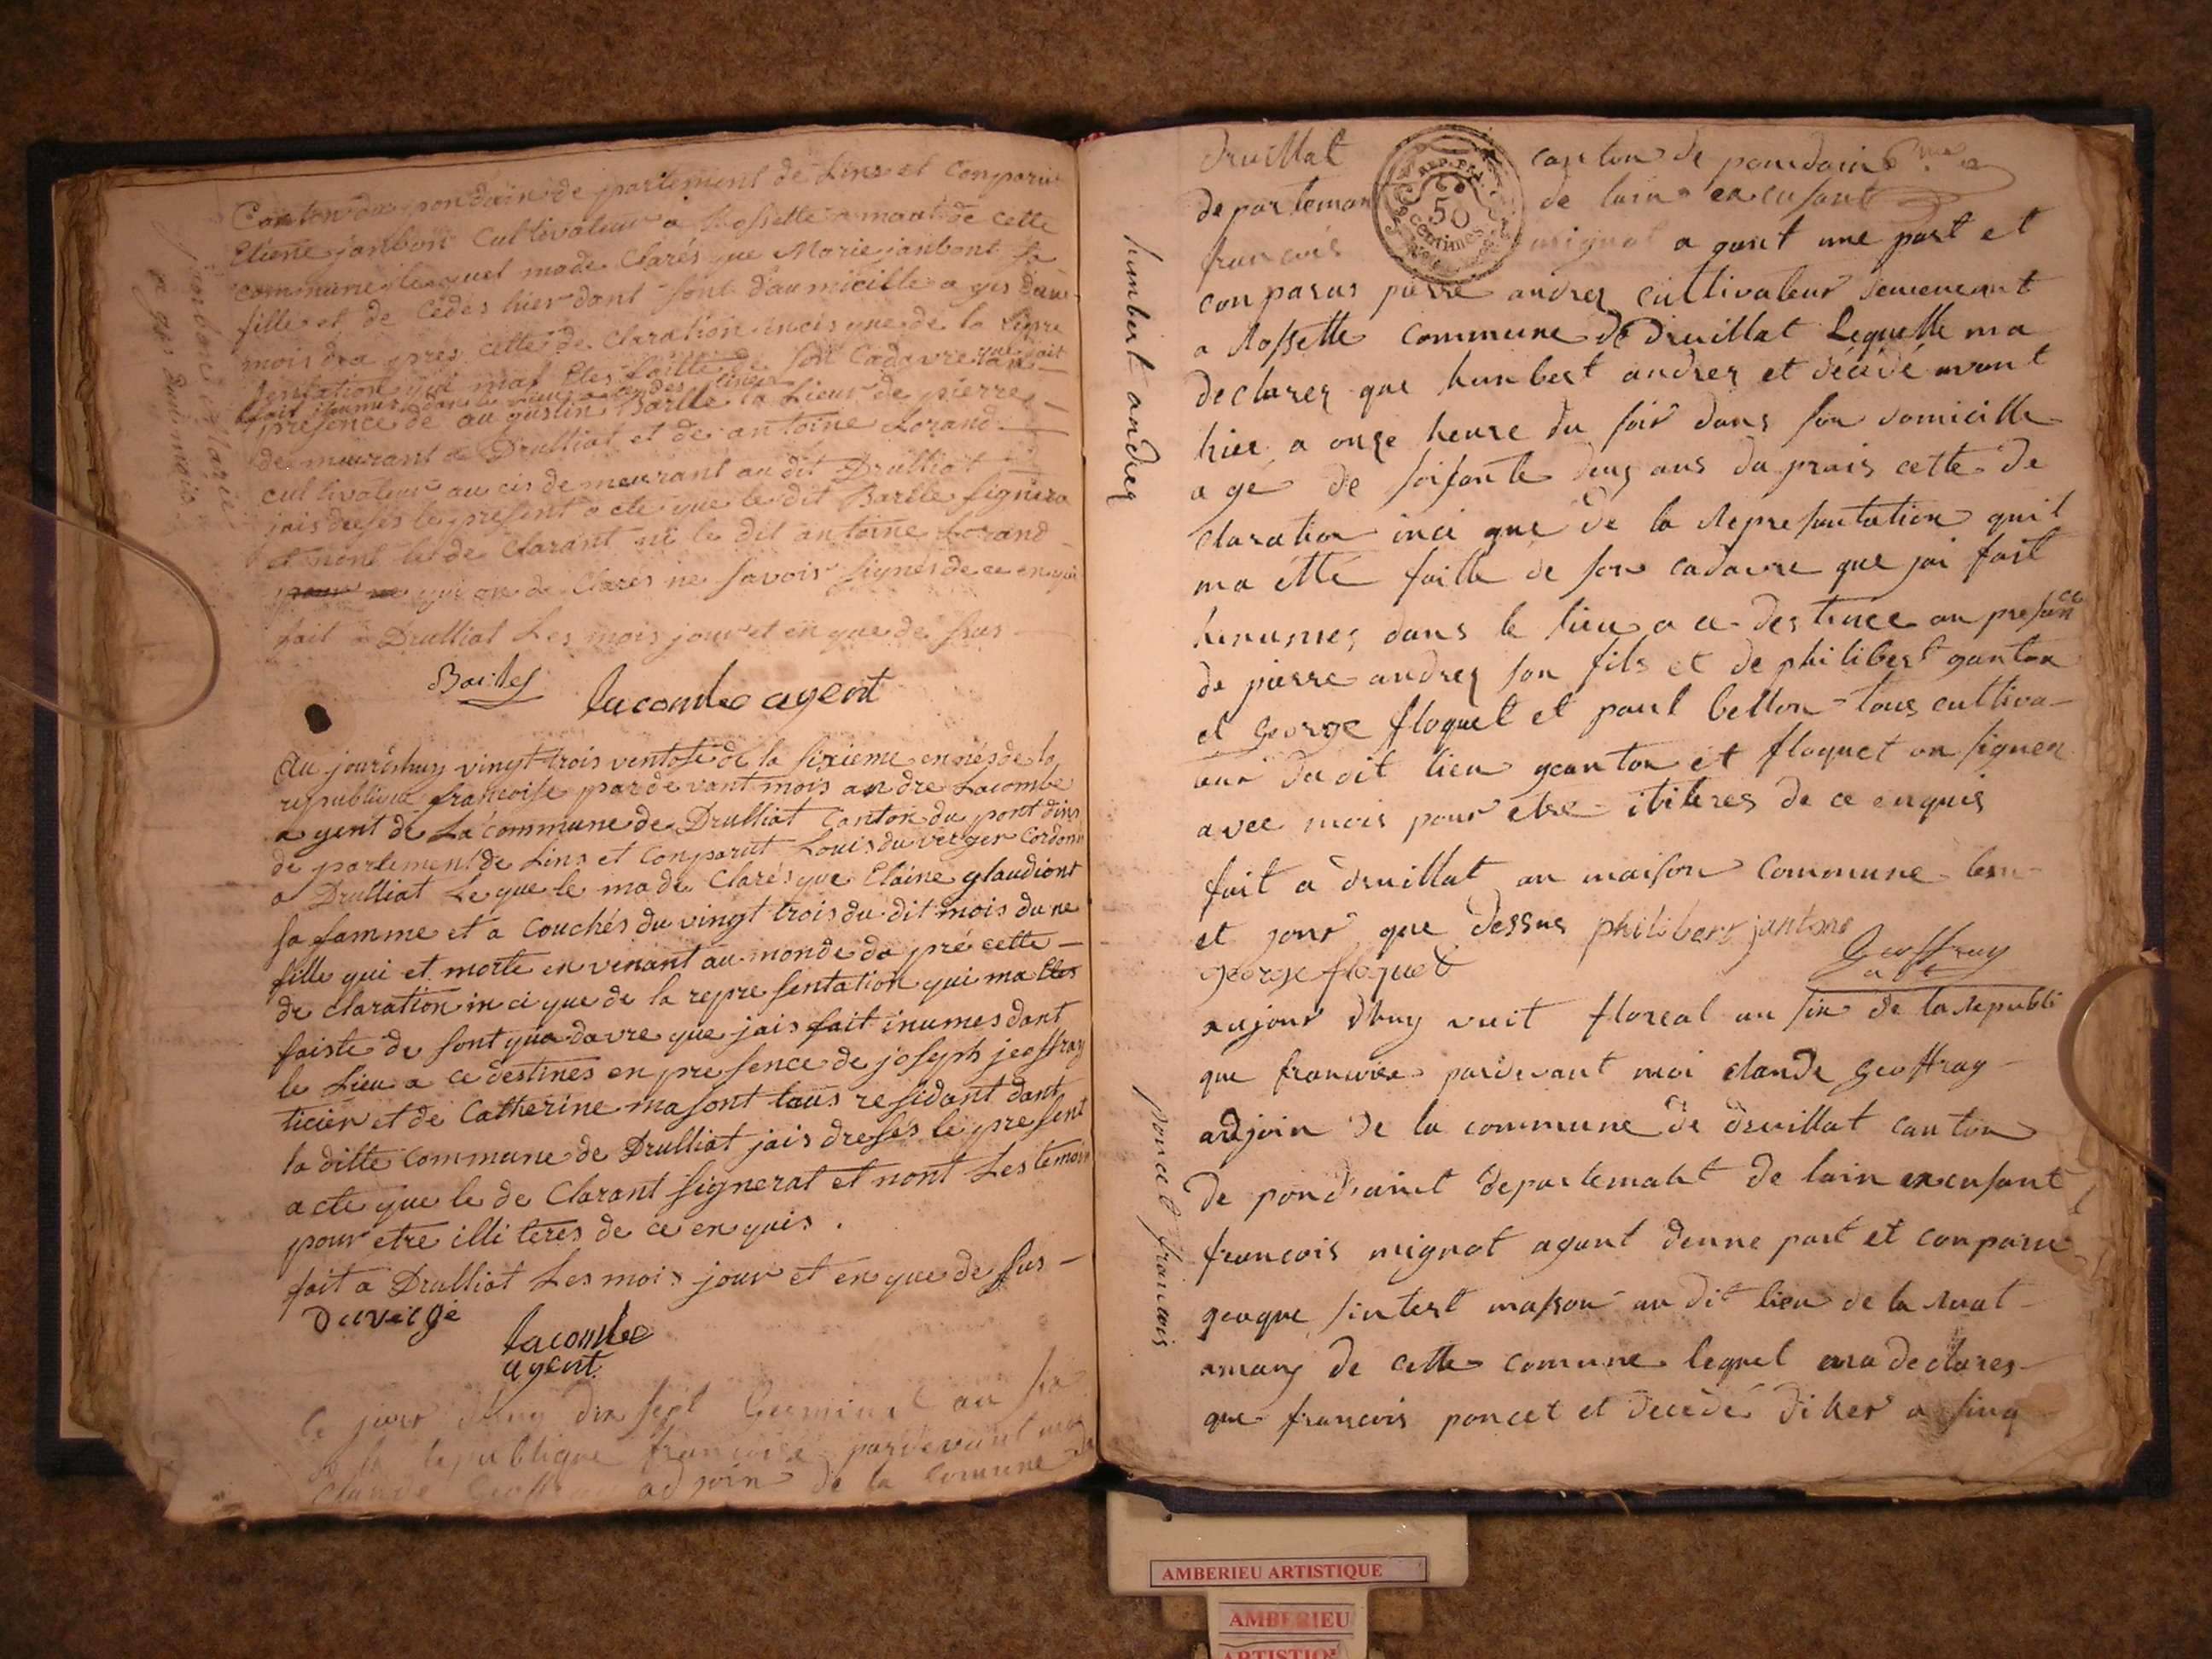 Canton du pondain de partement de Lins et Conparu
Etiene janbon Cultivateur a Rossette amant de cette
commune lequel made Clarés que Marie janbont sa
fille et de Cédes hier dant sont daumicille a ges dun
mois da pres cette de Claration incis que de la Repre
sentation qui mat Etes faitte de son Cadavre que jait
fait inumer dans le lieu a ce des tines en
presence de au gustin Barlle la Lieur de pierre
de meurant a Drulliat et de antoine Lorand
cultivateur au cis de meurant au dit Drulliat
jais dresés le present acte que le dit Barlle signera
et nont le de Clarant ni le dit antoine Lorand
qui on de Clarés ne savoir signes de ce enquis
fait a Drulliat Les mois jour et en que de sus
Barlles
lacombe agent
janbont Marie
a ges dun mois
Au jourdhuy vingt trois ventose de la sixieme ennés de la
republique francoise par de vant mois andre Lacombe
agent de La commune de Drulliat Canton du pont dins
de partement de Lins et Conparut Louis du verger Cordoni
a Drulliat Le que le made Clarés que Elaine glaudiont
sa famme et a Couchés du vingt trois du dit mois du ne
fille qui et morte en venant au monde da pré cette
de claration in ci que de la repre sentation qui ma Etes
faiste de sont qua davre que jais fait inumes dant
le Lieu a ce destines en pre sence de joseph jeoffray
ticier et de Catherine masont tous residant dant
la ditte commune de Drulliat jais dresés le present
acte que le de Clarant signerat et nont Les temoin
pour etre illi teres de ce en quis .
fait a Drulliat Les mois jour et en que de sus
Duvergé
lacombe
agent
Ce jour dhuy dix sept Germinal an six
de la republique francoise pardevant moi
Claude Geoffray adjoin de la Comune de
druillat canton de pondain
departeman de lain en cusant
francois mignat agant une part et
REP. FRA.
50
CENTIMES
conparus pierre andrez cultivateur demeurant
a Rossette commune de Druillat Lequelle ma
declarez que humbert andrez et décédé avant
hier a onze heure du soir dans son domicille
agé de soisante deuz ans du prais cette de
claration inci que de la Represantation quil
ma etté faitte de son cadavre que jai fait
hinumer dans le lieu a ce destinee an presance
de pierre andrez son fils et de philibert ganton
et george floquet et paul bellon tous cultiva
teur dudit lieu ganton et floquet on signer
avec mois pour etre ititeres de ce enquis
fait a druillat an maison commune lan
et jour que dessus philibert jantone
george floquet
Geoffray
humbert andrez
aujour dhuy vuit floreal an six de la Republi
que francoise pardevant moi claude Geoffray
adjoin de la commune de druillat canton
de pondaint departemant de lain en cusant
francois mignat agant denne part et conparu
geaque sintest masson au dit lieu de la Ruat
amanz de cette comune lequel ma declarez
que francois poncet et decédé dihier a sinq
poncet francois
AMBERIEU ARTISTIQUE
AMBERIEU
ARTISTIQUE